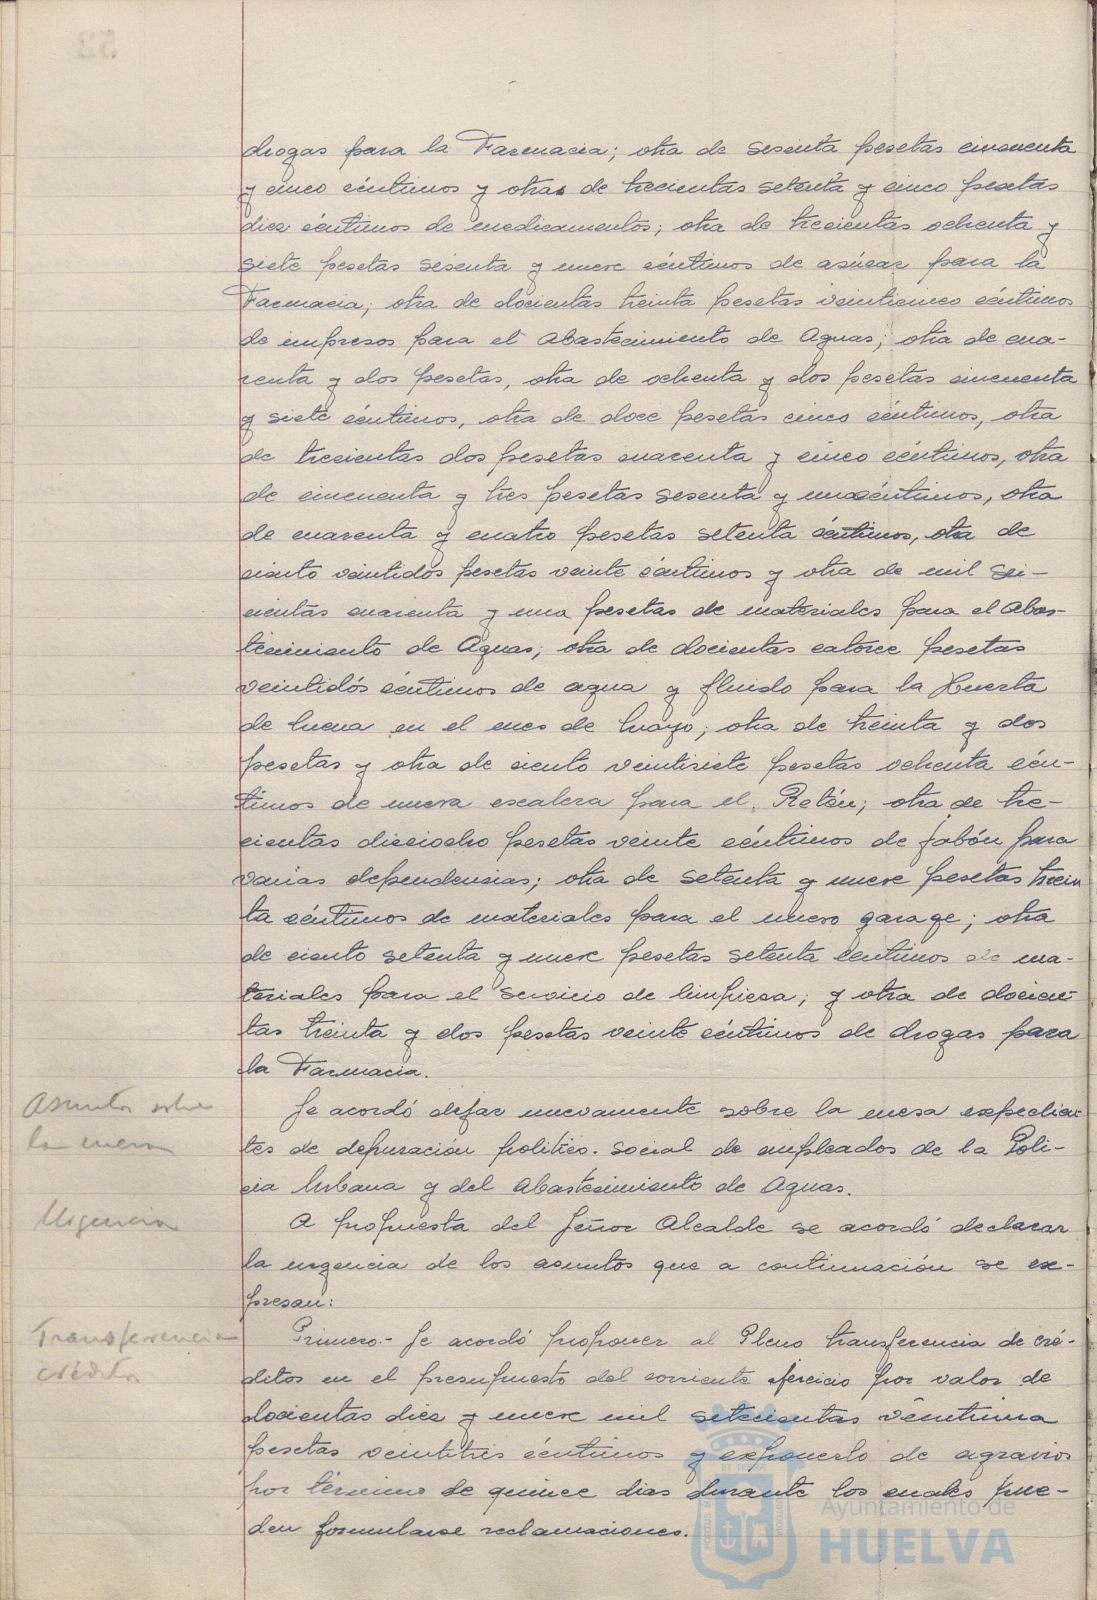 drogas para la Farmacia; otra de sesenta pesetas cincuenta
y cinco céntimos y otras de trecientas setenta y cinco pesetas
diez céntimos de medicamentos; otra de trecientas ochenta y
siete pesetas sesenta y nueve céntimos de azúcar para la
Farmacia; otra de docientas treinta pesetas veinticinco céntimos
de impresos para el Abastecimiento de Aguas; otra de cua-
renta y dos pesetas, otra de ochenta y dos pesetas cincuenta
y siete céntimos, otra de doce pesetas cinco céntimos, otra
de trecientas dos pesetas cuarenta y cinco céntimos, otra
de cincuenta y tres pesetas sesenta y un céntimos, otra
de cuarenta y cuatro pesetas setenta céntimos, otra de
ciento veintidós pesetas veinte céntimos y otra de mil sei-
cientas cuarenta y una pesetas de materiales para el Abas-
tecimiento de Aguas; otra de docientas catorce pesetas
veintidós céntimos de agua y fluido para la Huerta
de Mena en el mes de Mayo; otra de treinta y dos
pesetas y otra de ciento veintisiete pesetas ochenta cén-
timos de nueva escalera para el Retén; otra de tre-
cientas dieciocho pesetas veinte céntimos de jabón para
varias dependencias; otra de setenta y nueve pesetas trein
ta céntimos de materiales para el nuevo garage; otra
de ciento setenta y nueve pesetas setenta céntimos de ma-
teriales para el servicio de limpieza; y otra de docien-
tas treinta y dos pesetas veinte céntimos de drogas para
la Farmacia.
Asuntos sobre
la mesa
Se acordó dejar nuevamente sobre la mesa expedien
tes de depuración político-social de empleados de la Poli-
cia Urbana y del Abastecimiento de Aguas.
Urgencia
A propuesta del Señor Alcalde se acordó declarar
la urgencia de los asuntos que a continuación se ex-
presan:
Transferencia
crédito
Primero.- Se acordó proponer al Pleno transferencia de cré-
ditos en el presupuesto del corriente ejercicio por valor de
docientas diez y nueve mil setecientas veintiuna
pesetas veintitrés céntimos y exponerlo de agravios
por término de quince dias durante los cuales pue-
den formularse reclamaciones.
Ayuntamiento de
HUELVA